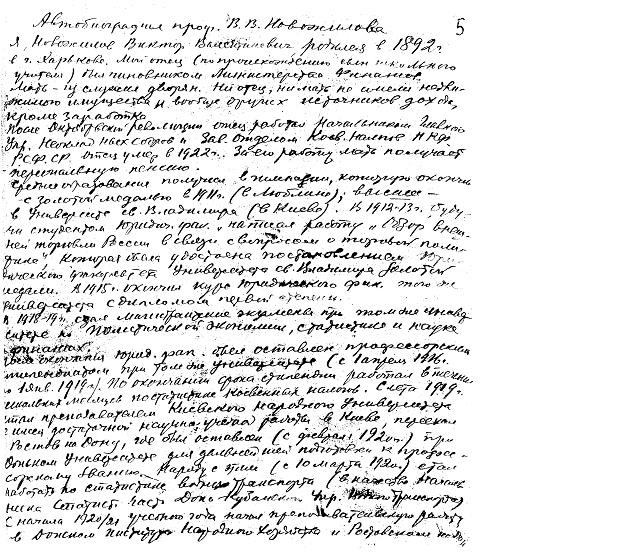 Автобиография проф. В.В. Новожилова
5
Я, Новожилов Виктор Валентинович родился в 1892 г.
в г. Харькове. Мой отец (по происхождению сын школьного
учителя) был чиновником Министерства Финансов.
Мать - из служилых дворян. Ни отец, ни мать не имели недви-
жимого имущества и вообще других источников дохода,
кроме заработка.
После Октябрьской революции отец работал начальником Главного
Упр. Неокладных сборов и Зав. отделом Косв. налогов НКФ
РСФСР. Отец умер в 1922 г. За его работу мать получает
персональную пенсию.
Среднее образование получил в гимназии, которую окончил
с золотой медалью в 1911 г. (в Люблино); высшее -
в Университете св. Владимира (в Киеве). В 1912-13 г. буду-
чи студентом юридич. фак. написал работу "Обзор внеш-
ней торговли России в связи с вопросом о торговой поли-
тике", которая была удостоена постановлением Юри-
дического факультета Университета св. Владимира Золотой
медали. В 1915 г. окончил курс юридического фак. того же
университета с дипломом первой степени.
В 1918-19 г. сдал магистрантские экзамены при том же универ-
ситете по политической экономии, статистике и науке
финансах.
По окончании юрид. фак. был оставлен профессорским
стипендиатом при том же Университете (с 1 апреля 1916
по 1 янв. 1919 г.). По окончании срока стипендии работал в течении
нескольких месяцев по статистике косвенных налогов. С лета 1919 г.
стал преподавателем Киевского народного Университета
научной работы в Киеве, переехал
Ростов на Дону, где был оставлен (с февраля 1920 г.) при
Донском Университете для дальнейшей подготовки к профес-
сорскому званию. Наряду с этим (с 10 марта 1920 г.) стал
работать по статистике водного транспорта (в качестве началь-
ника Статист. части Доно-Кубанского Упр. Водного транспорта)
С начала 1920/21 учебного года начал преподавательскую работу
в Донском институте Народного Хозяйства и Ростовском